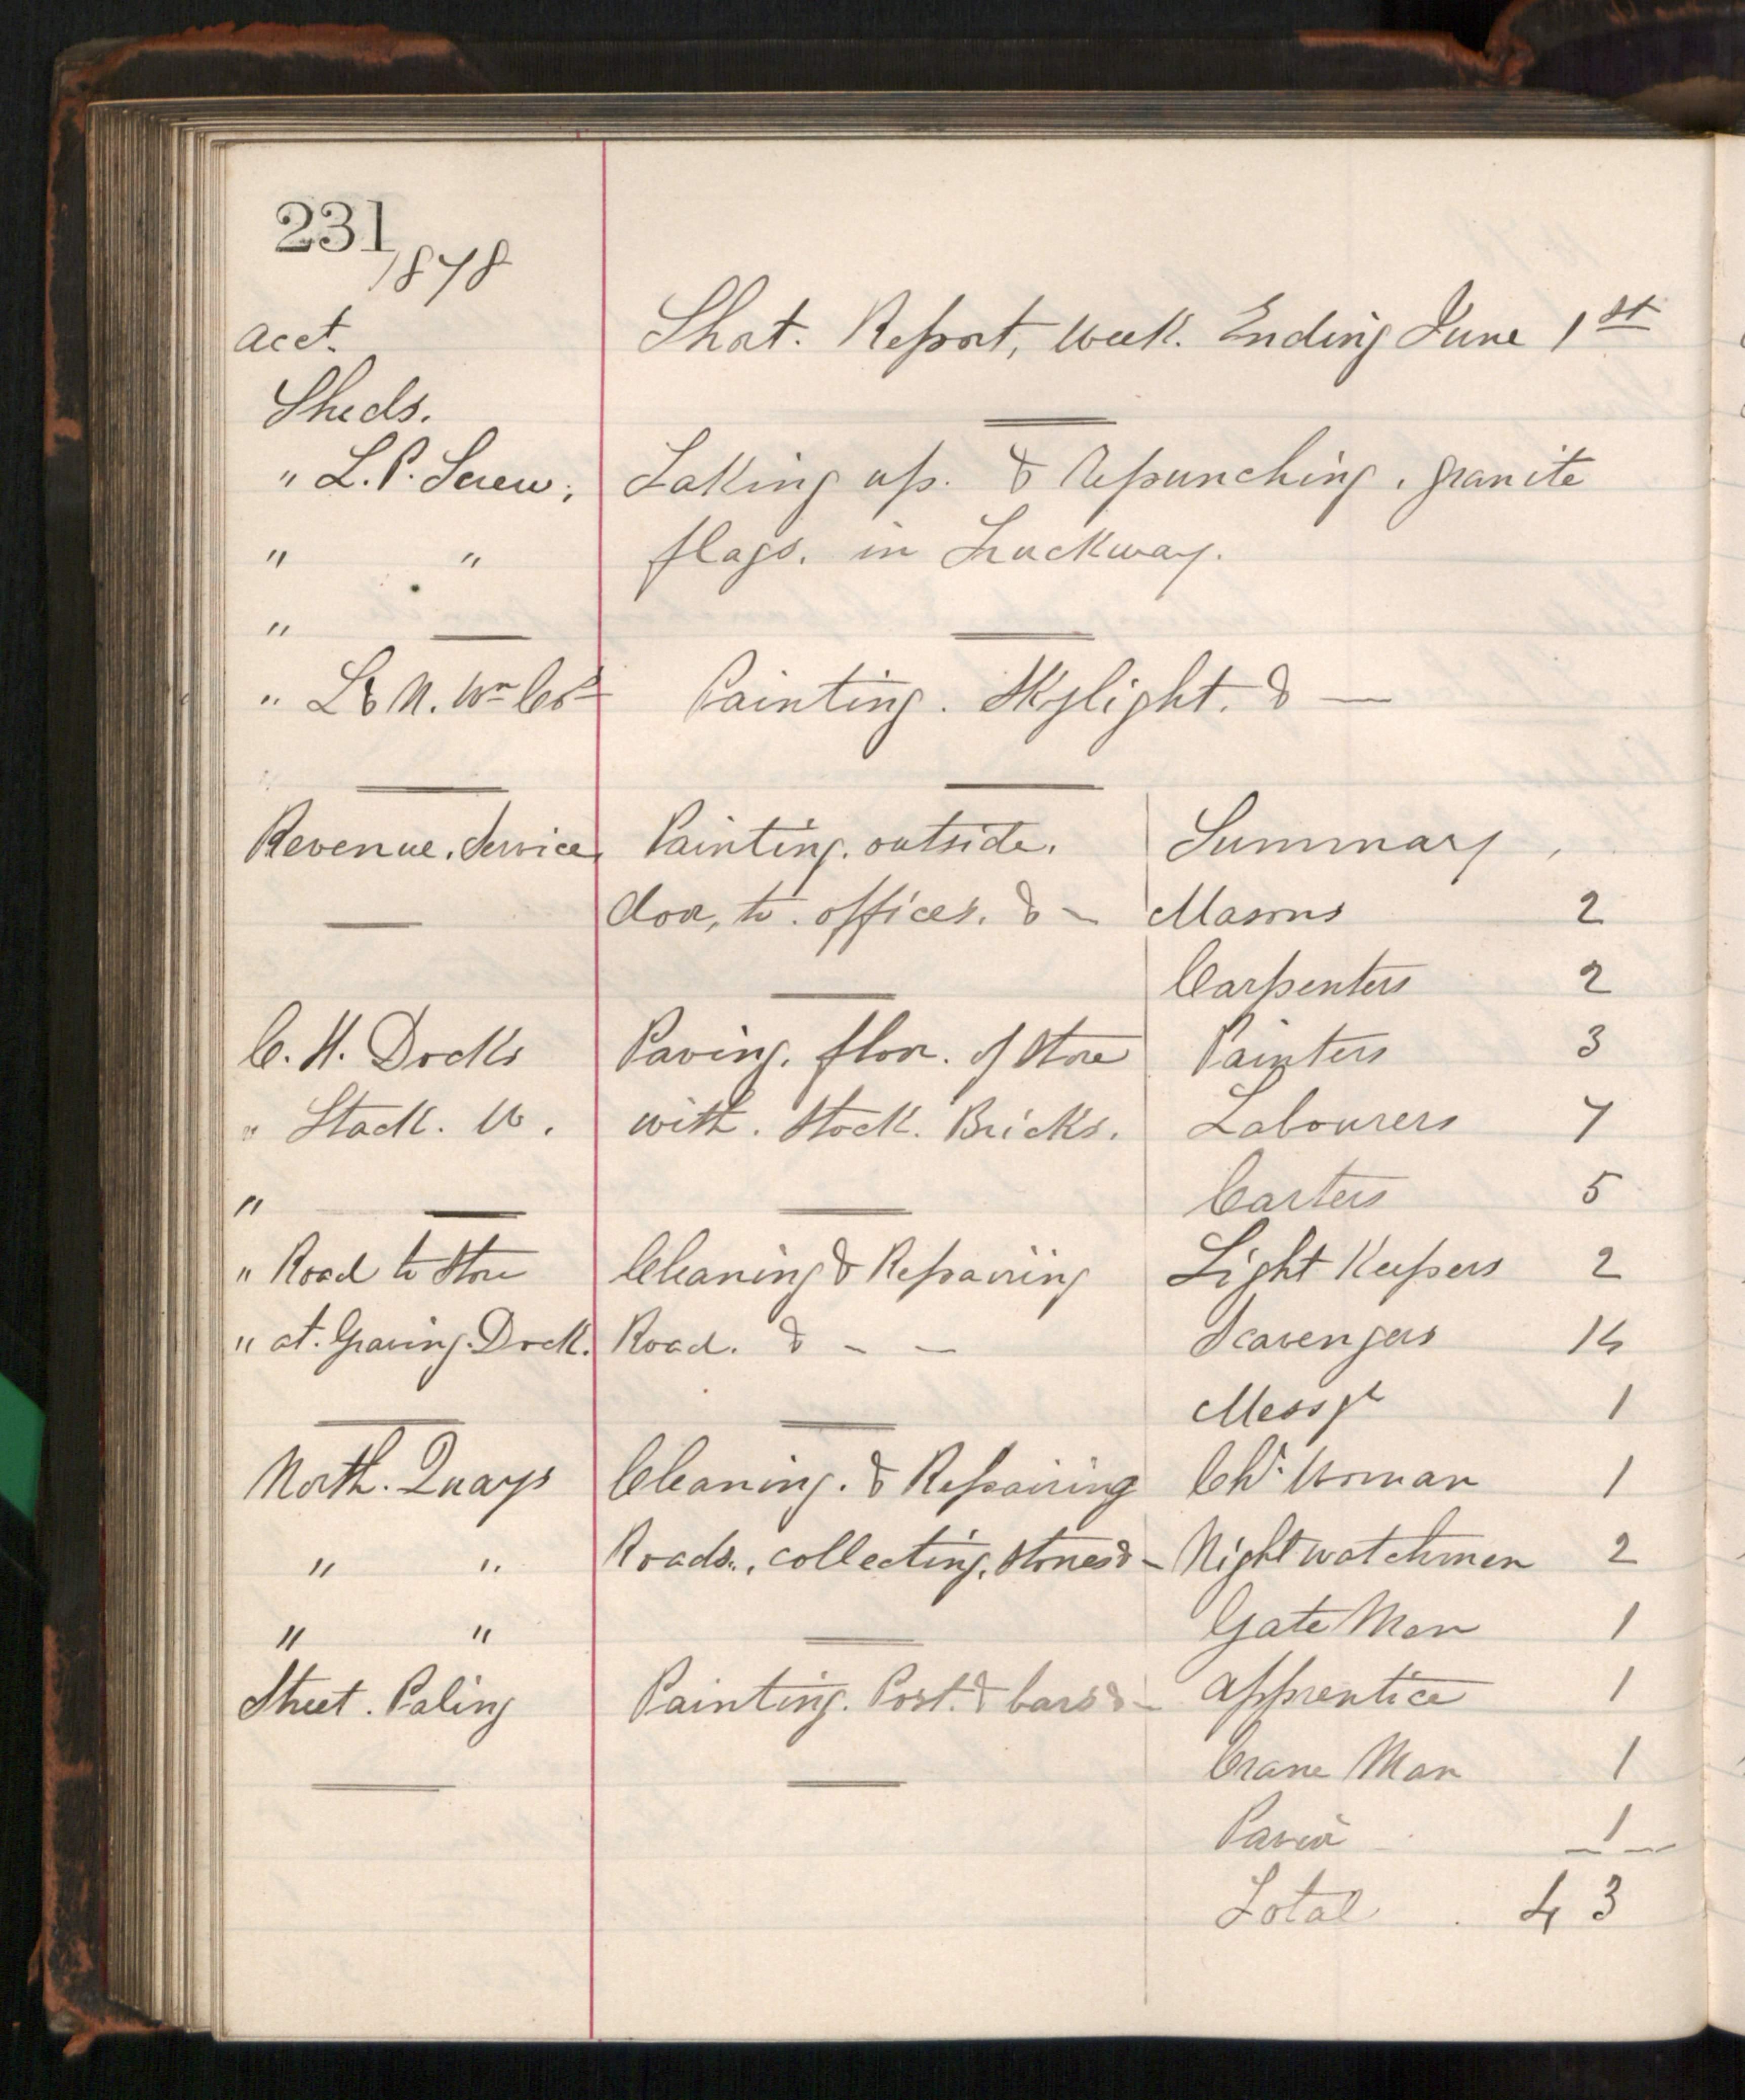 231
1878
Acct. Short. Report, Week. Ending June 1st
Sheds.
" L.P. Screw, Taking up. & Repunching, granite
" " flags. in Truckway.
"
" L & N. Wn Co's Painting. Skylight. & —
Revenue. Service, Painting. outside. Summary,
door, to. offices. & — Masons 2
Carpenters 2
C. H. Docks Paving. floor. of Store Painters 3
" Stack. W. with. Stock. Bricks. Labourers 7
" Carters 5
" Road to Store Cleaning & Repairing Light Keepers 2
" at. Graving. Dock. Road. & — — Scavengers 14
Messgr 1
North. Quays Cleaning. & Repairing Ch. Woman 1
" " Roads., collecting, stones & — Night watchmen 2
" " Gate Man 1
Street. Paling Painting. Post. & bars & — Apprentice 1
Crane Man 1
Pavior 1
Total 43